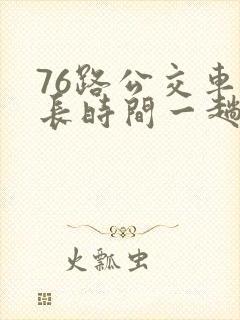 76路公交車
長時間一趟
火瓢虫